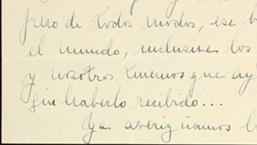 pero de todos modos, ese b
el mundo, inclusives los
y nosotros tenemos que ay
sin haberlo recibido...
Ya averigüamos l